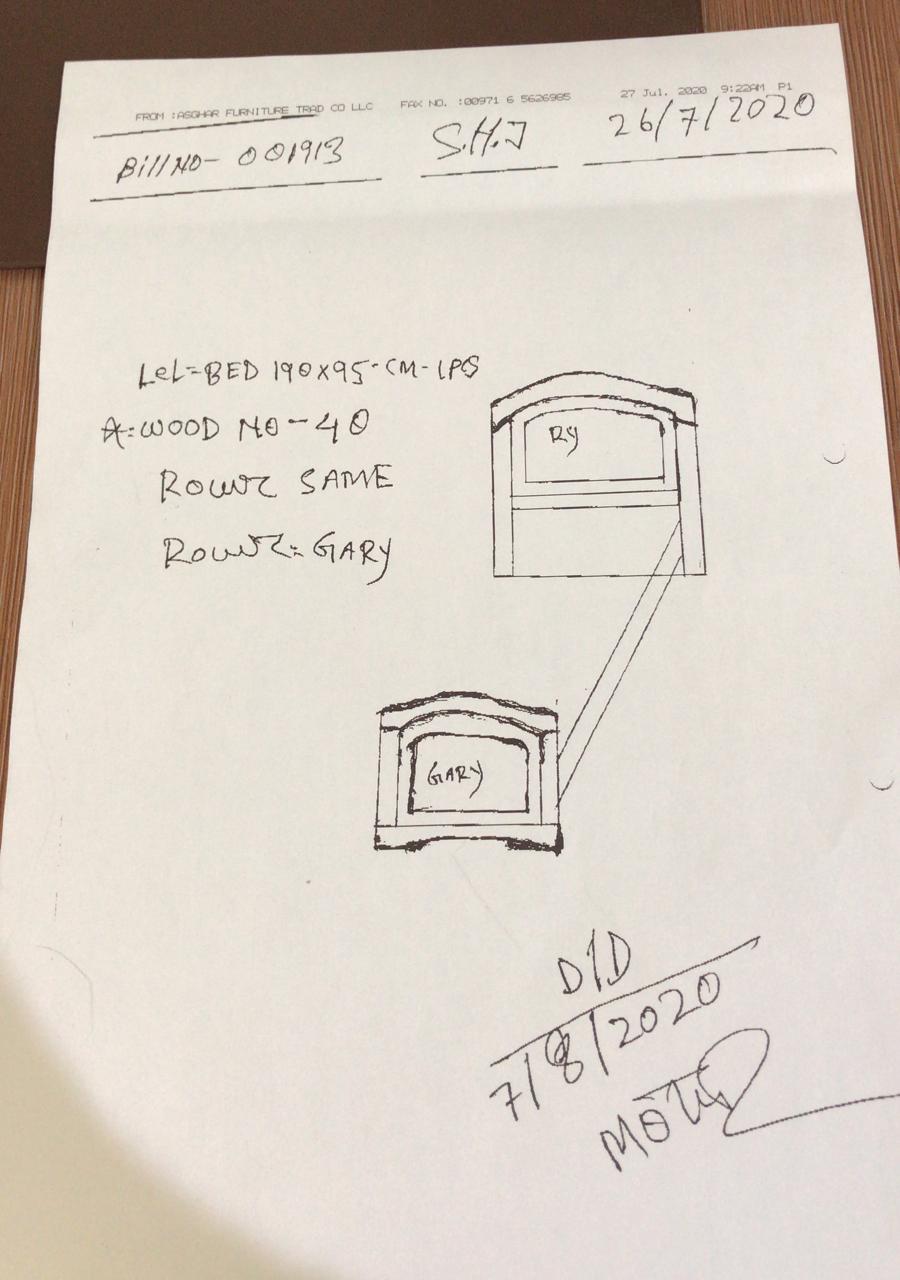 FROM :ASGHAR FURNITURE TRAD CO LLC FAX NO. :00971 6 5626985 27 Jul. 2020 9:22AM P1
Bill NO- 001913 S.H.J 26/7/2020
LeL=BED 190X95-CM-1PCS
A:WOOD NO-40
SAME
GARY
RY
GARY
D/D
7/8/2020